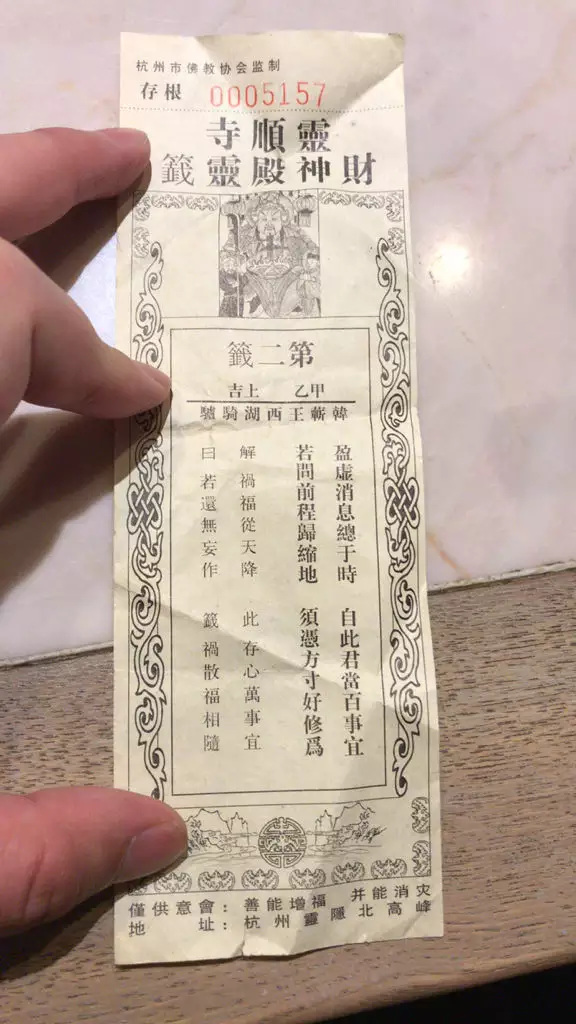 杭州市佛教协会监制
存根 0005157
靈順寺
財神殿靈籤
第二籤
甲乙 上吉
韓蘄王西湖騎驢
盈虛消息總于時 自此君當百事宜
若問前程歸縮地 須憑方寸好修爲
解禍福從天降 此存心萬事宜
曰若還無妄作 籤禍散福相隨
僅供意會：善能增福 并能消灾
地址：杭州靈隱北高峰